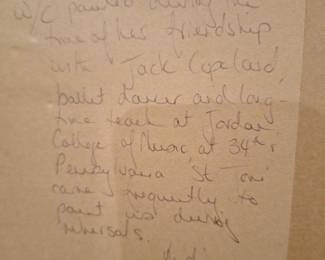 W/C painted during the
time of her friendship
with Jack Copeland,
ballet dancer and long-
time teach at Jordan
College of Music, at 34th &
Pennsylvania St
came frequently to
paint us during
rehersals.